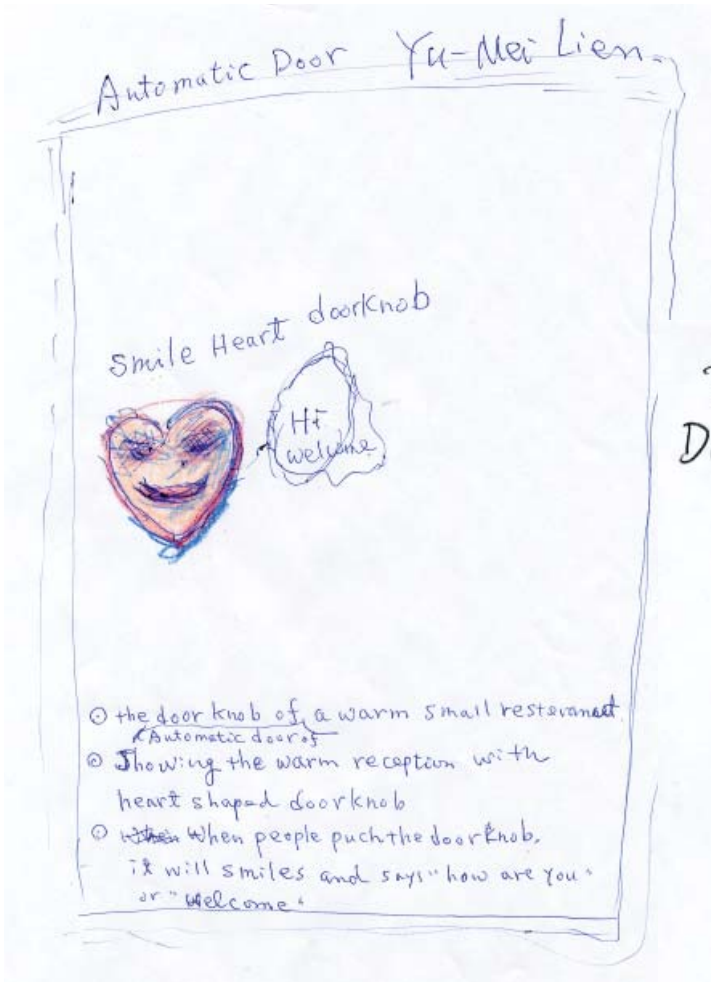 Automatic Door Yu-Mei Lien
Smile Heart doorknob
Hi
welcome
D
the door knob of a warm small
Automatic door of
Showing the warm reception with
heart shaped doorknob
When people puch the doorknob,
it will smiles and says "how are you"
or "welcome"